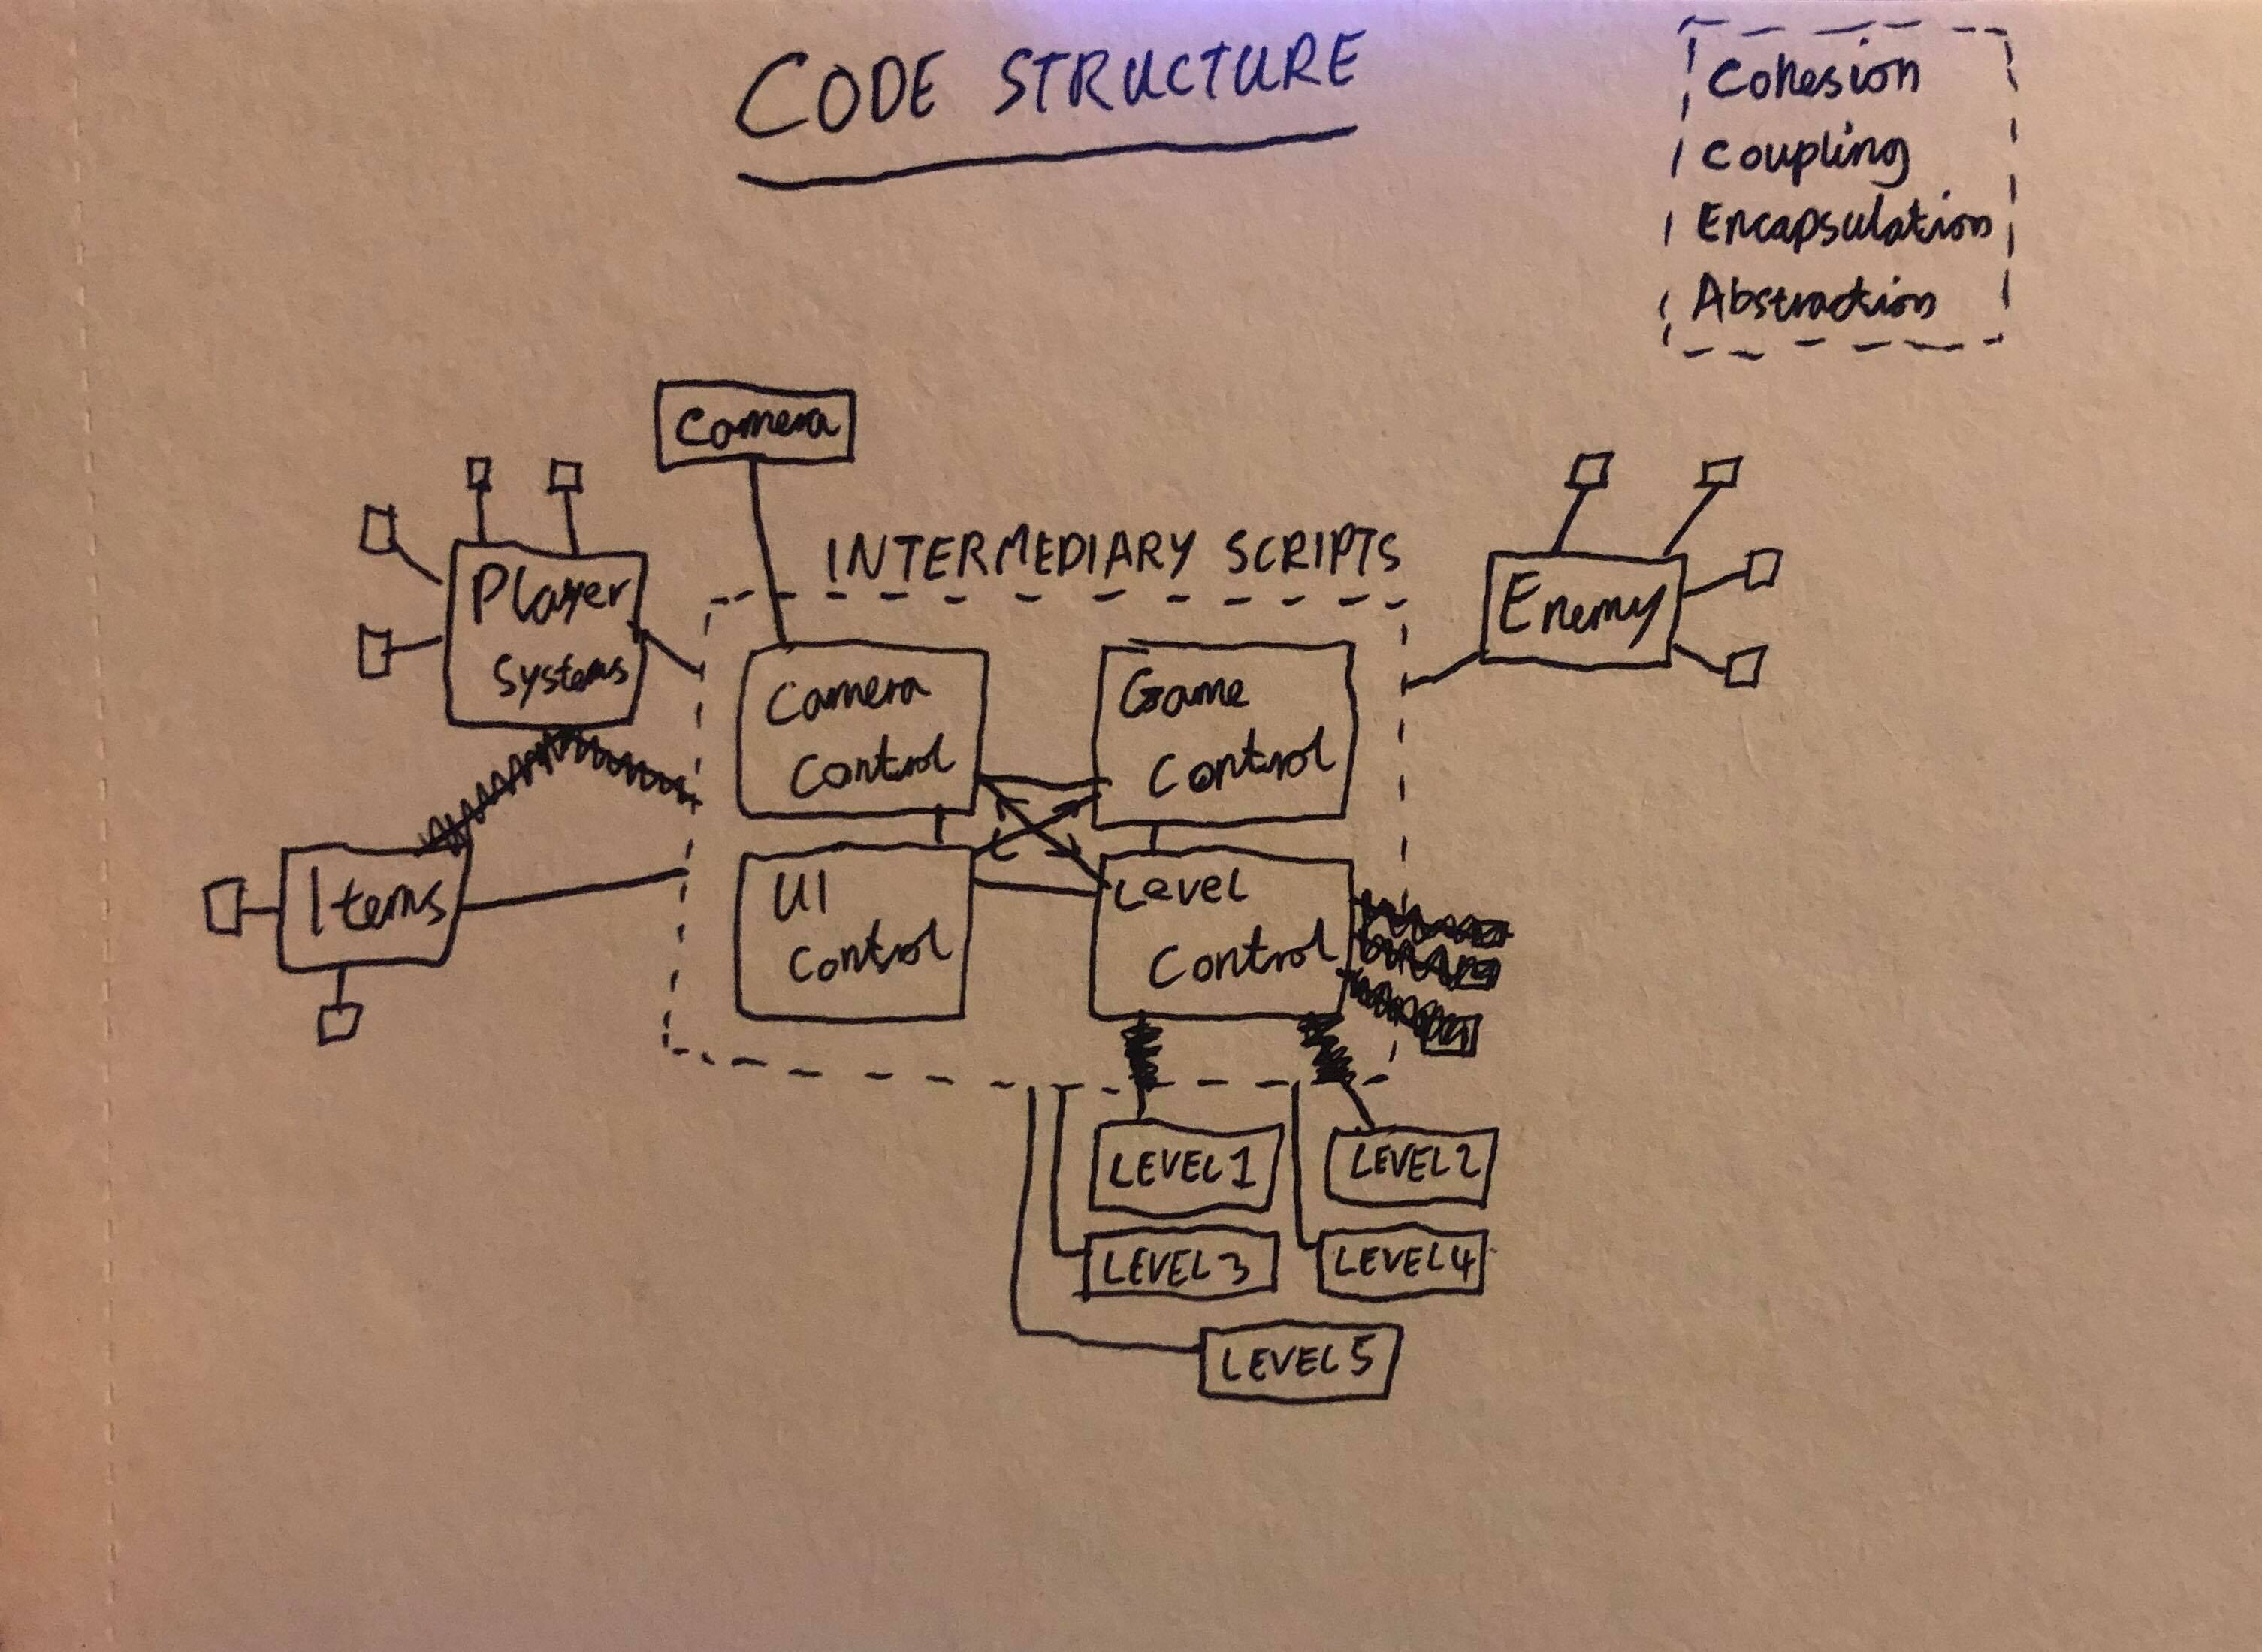 CODE STRUCTURE
Cohesion
Coupling
Encapsulation
Abstraction
Camera
INTERMEDIARY SCRIPTS
Player
Systems
Enemy
Camera
Control
Game
Control
Items
UI
Control
Level
Control
LEVEL 1
LEVEL 2
LEVEL 3
LEVEL 4
LEVEL 5